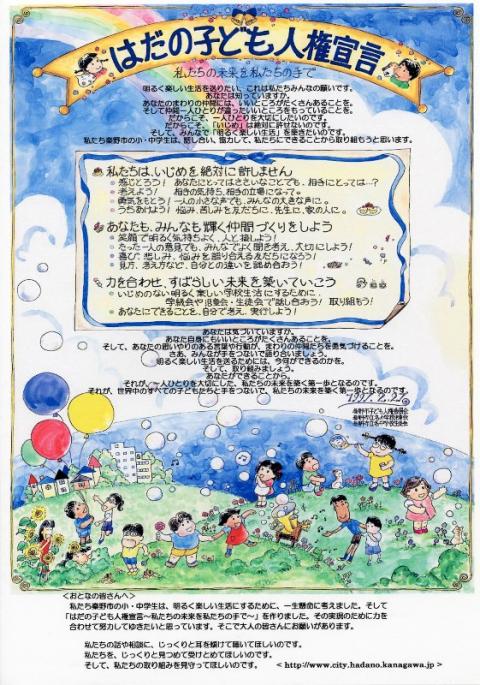 はだの子ども人権宣言
私たちの未来を私たちの手で
明るく楽しい生活を送りたい、これは私たちみんなの願いです。
あなたは知っていますか。
あなたのまわりの仲間には、いいところがたくさんあることを。
そして仲間一人ひとりが違ったいいところをもっていることを。
だからこそ、一人ひとりを大切にしたいのです。
だからこそ、「いじめ」は絶対に許せないのです。
そして、みんなで「明るく楽しい生活」を築きたいのです。
私たち秦野市の小・中学生は、話し合い、協力して、私たちにできることから取り組もうと思います。
私たちは、いじめを絶対に許しません
感じとろう! あなたにとってはささいなことでも、相手にとっては…?
考えよう! 相手の気持ち、相手の立場になって。
勇気をもとう! 一人の小さな声でも、みんなの大きな声に。
うちあけよう! 悩み、苦しみを友だちに、先生に、家の人に。
あなたも、みんなも輝く仲間づくりをしよう
笑顔で明るく気持ちよく、人と接しよう!
たった一人の意見でも、みんなでよく聞き考え、大切にしよう!
喜び、悲しみ、悩みを語り合える友だちになろう!
見方、考え方など、自分との違いを認め合おう!
力を合わせ、すばらしい未来を築いていこう
いじめのない明るく楽しい学校生活にするために、
学級会や児童会・生徒会で話し合おう! 取り組もう!
あなたにできることを、自分で考え、実行しよう!
あなたは気づいていますか。
あなた自身にもいいところがたくさんあることを。
そして、あなたの思いやりのある言葉や行動が、まわりの仲間たちを勇気づけることを。
さあ、みんなが手をつないで語り合いましょう。
明るく楽しい生活を送るためには、今何ができるのかを。
そして、取り組みましょう。
あなたができることから。
それが、一人ひとりを大切にした、私たちの未来を築く第一歩となるのです。
それが、世界中のすべての子どもたちと手をつないで、私たちの未来を築く第一歩となるのです。
1997.8.27
<おとなの皆さんへ>
私たち秦野市の小・中学生は、明るく楽しい生活にするために、一生懸命に考えました。そして
「はだの子ども人権宣言~私たちの未来を私たちの手で~」を作りました。その実現のために力を
合わせて努力してゆきたいと思っています。そこで大人の皆さんにお願いがあります。
私たちの話や相談に、じっくりと耳を傾けて聴いてほしいのです。
私たちを、じっくりと見つめて受けとめてほしいのです。
そして、私たちの取り組みを見守ってほしいのです。 < http://www.city.hadano.kanagawa.jp >